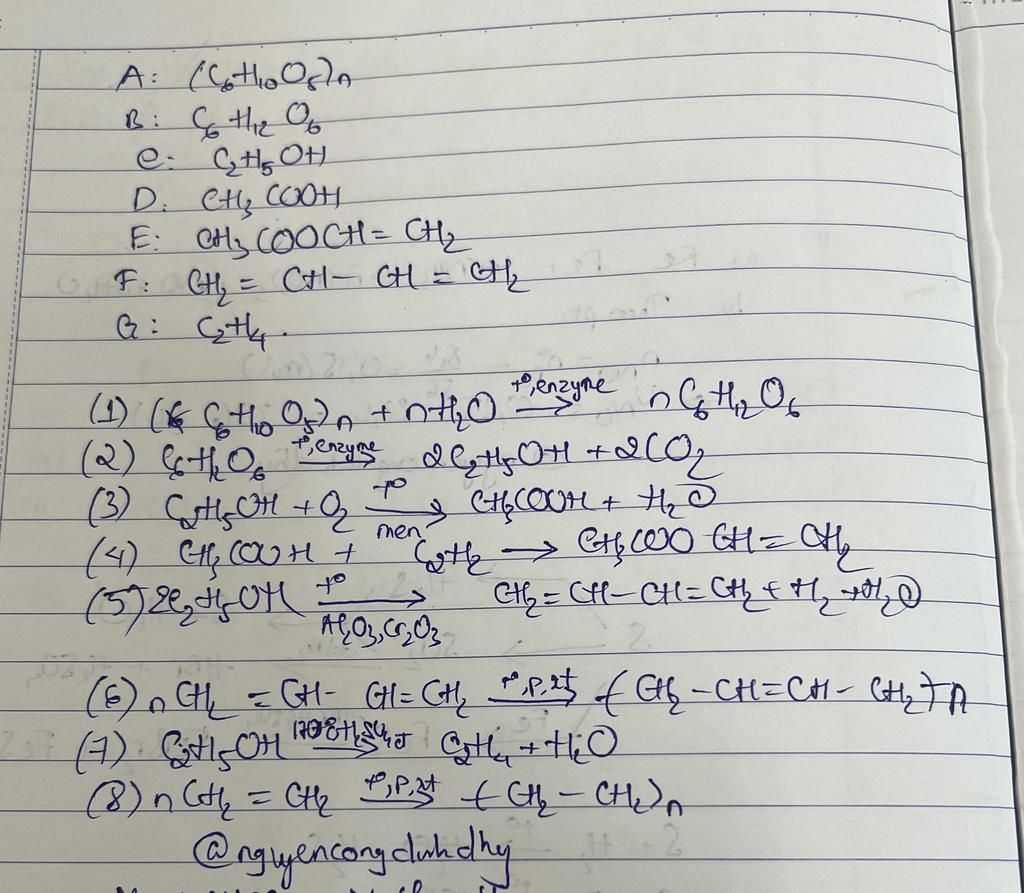 A: (C6H10O5)n
B: C6H12O6
C: C2H5OH
D: CH3COOH
E: CH3COOCH=CH2
F: CH2=CH-CH=CH2
G: C2H4.
(1) (C6H10O5)n + nH2O t°,enzyme → nC6H12O6
(2) C6H12O6 t°,enzyme → 2C2H5OH + 2CO2
(3) C2H5OH + O2 t° → men CH3COOH + H2O
(4) CH3COOH + C2H2 → CH3COOCH=CH2
(5) 2C2H5OH t° → Al2O3,Cr2O3 CH2=CH-CH=CH2 + H2 + H2O
(6) nCH2=CH-CH=CH2 t°,P,xt → (CH2-CH=CH-CH2)n
(7) C2H5OH 170°C H2SO4 đ → C2H4 + H2O
(8) nCH2=CH2 t°,P,xt → (CH2-CH2)n